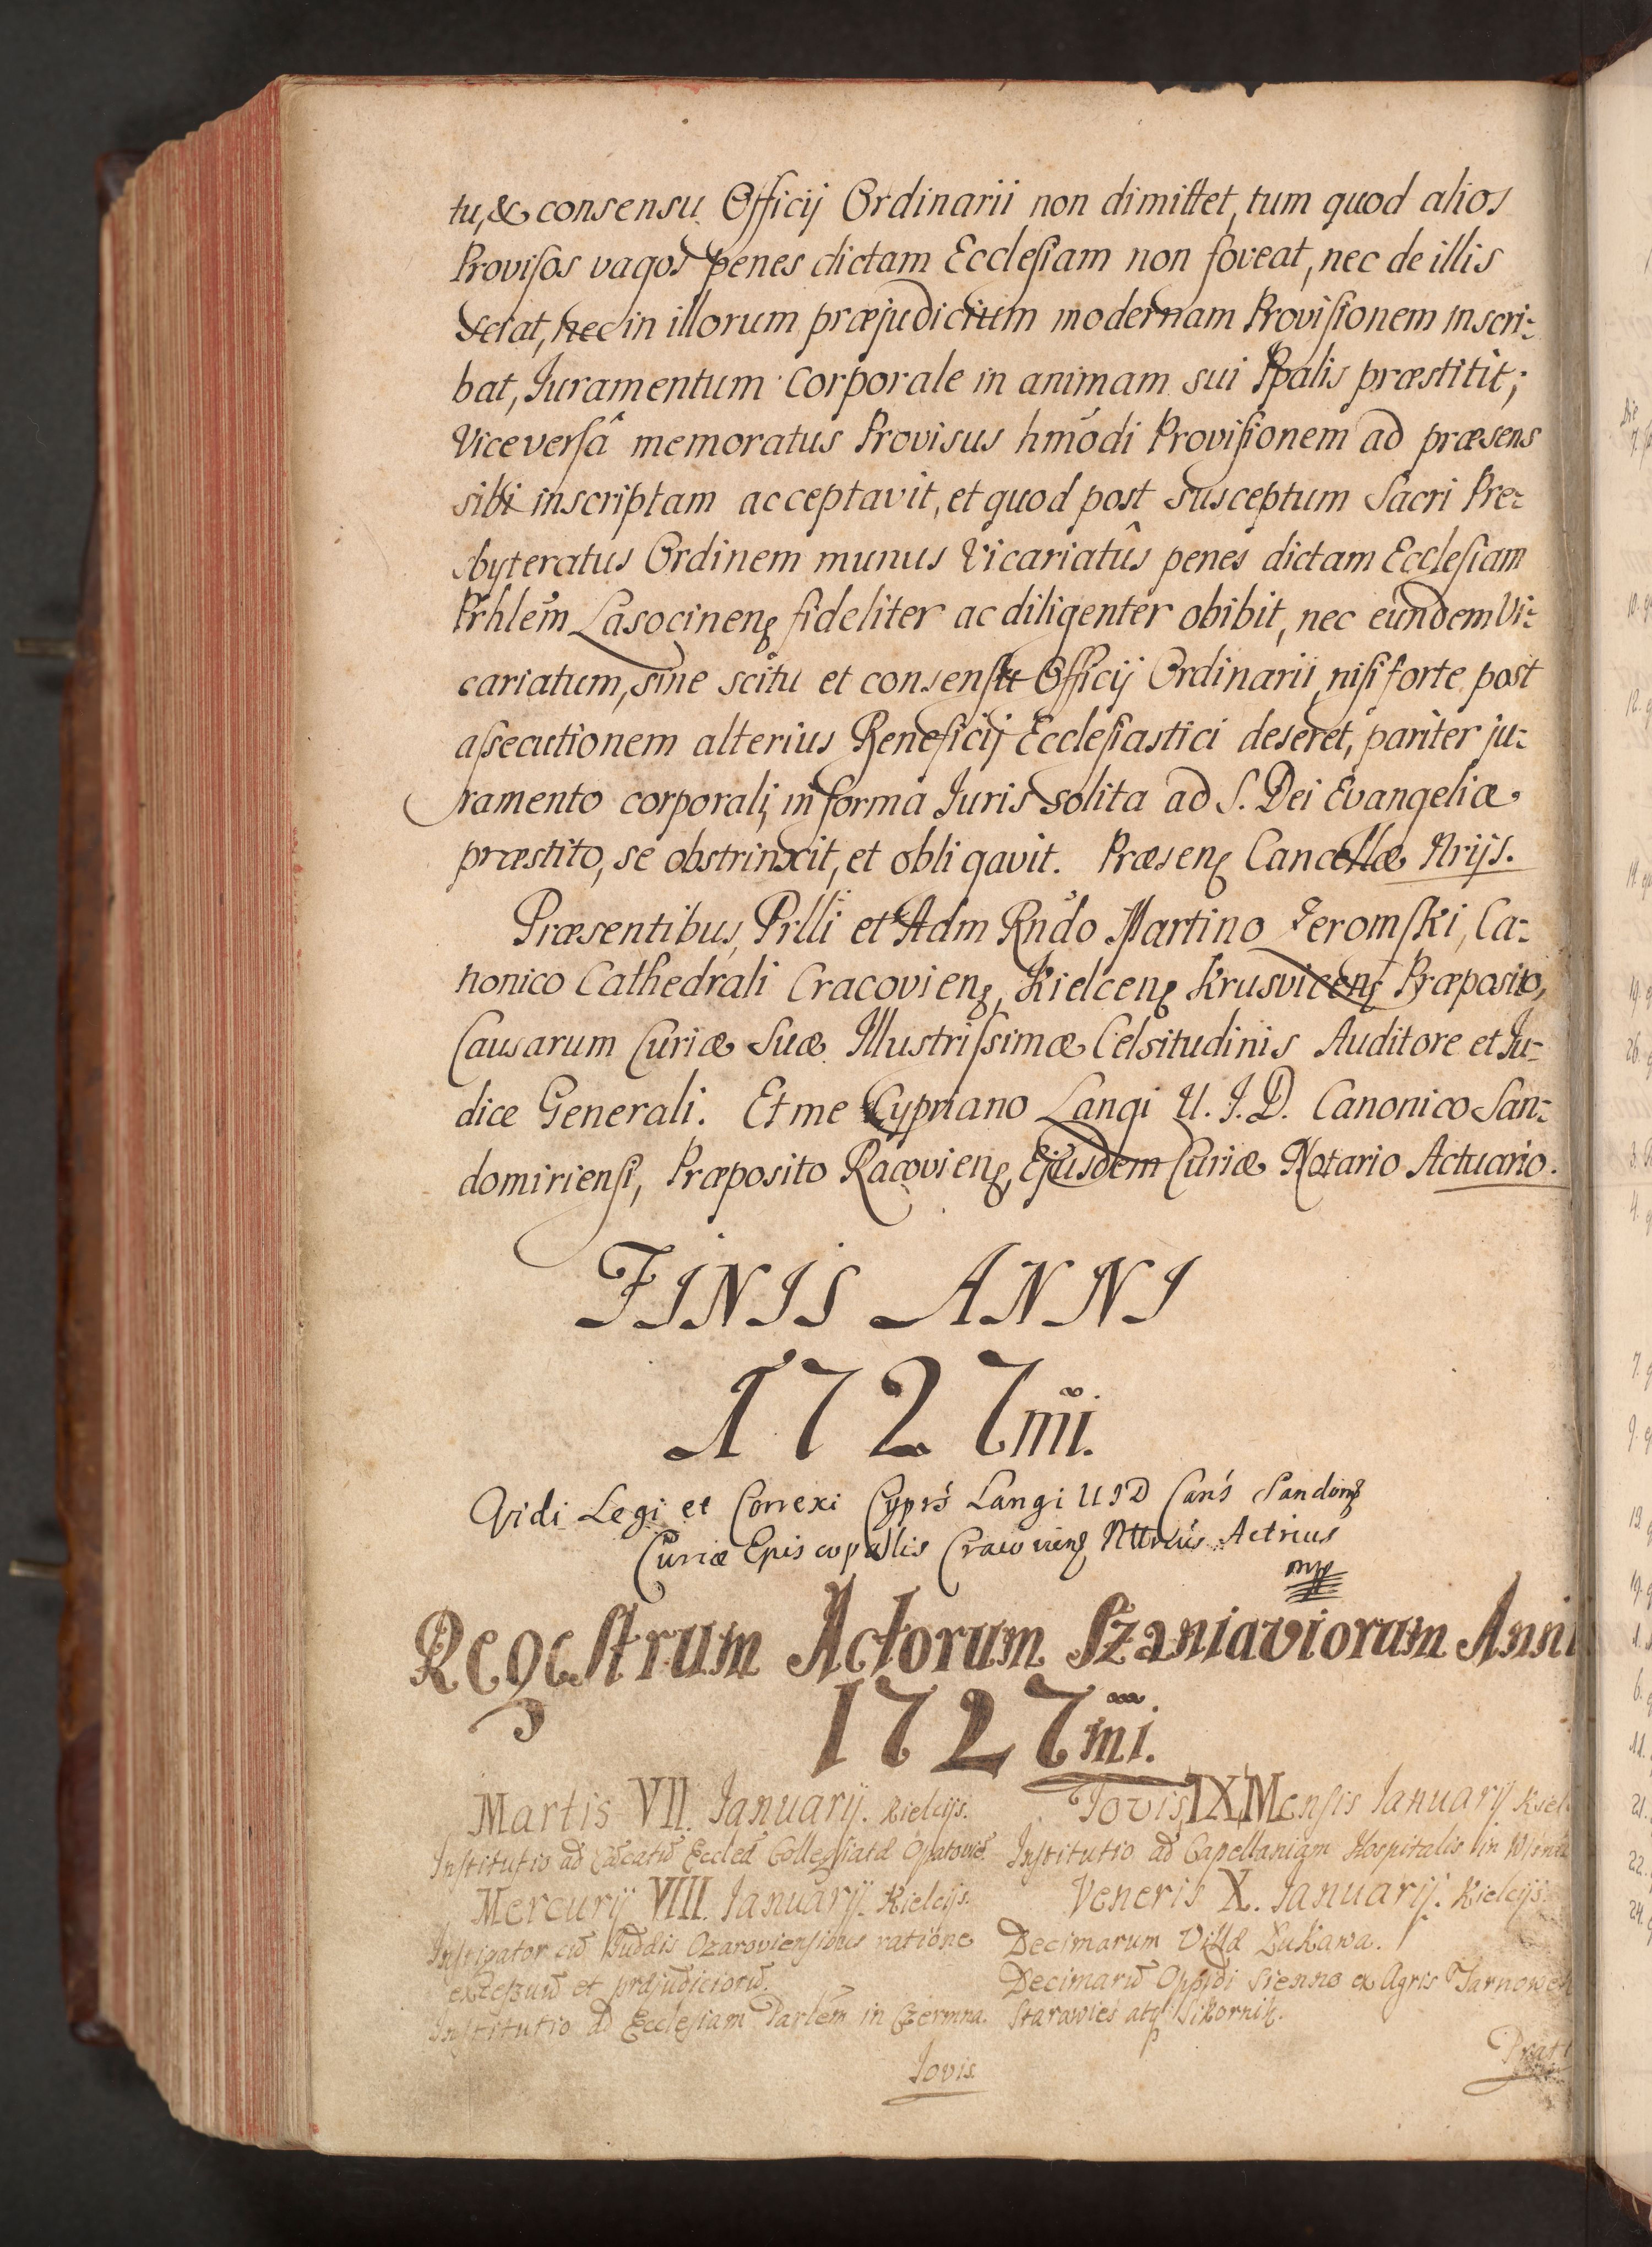 tu, & consensu Officij Ordinarii non dimittet, tum quod alios
Provisos vagos penes dictam Ecclesiam non foveat, nec de illis
sciat, nec in illorum præjudicium modernam Provisionem inscri-
bat, Juramentum Corporale in animam sui Ppalis præstitit;
Viceversâ memoratus Provisus hmódi Provisionem ad præsens
sibi inscriptam acceptavit, et quod post susceptum Sacri Pre-
sbyteratus Ordinem munus Vicariatûs penes dictam Ecclesiam
Prhlem Lasocinenß fideliter ac diligenter obibit, nec eundem Vi-
cariatum, sine scitu et consensu Officij Ordinarii, nisi forte post
assecutionem alterius Beneficij Ecclesiastici deseret, pariter ju-
ramento corporali, in forma Juris solita ad S. Dei Evangelia
præstito, se obstrinxit, et obligavit. Præsenß Cancellæ Nrijs.
Præsentibus, Prlli et Adm Rndo Martino Zeromski, Ca-
nonico Cathedrali Cracovienß, Kielcenß Krusvicenß Præposito,
Causarum Curiæ Suæ Illustrissimæ Celsitudinis Auditore et Ju-
dice Generali. Et me Cypriano Langi U. J. D. Canonico San-
domiriensi, Præposito Racovienß, Ejusdem Curiæ Notario Actuario.
FINIS ANNI
1727mi.
Vidi Legi et Correxi Cyprs Langi UJD Cans Sandomß
Curiæ Episcopalis Cracovienß Nttrius Actrius
mpp
Regestrum Actorum Szaniaviorum Anni
1727mi.
Martis VII. Januarij. Kielcijs.
Institutio ad Ecclæ Collegiatæ Opatovie.
Mercurij VIII. Januarij. Kielcijs.
Instigator cum Judæis Ozaroviensibus ratione
excessuum et præjudiciorum.
Institutio ad Ecclesiam Parlem in Czermna.
Jovis.
Jovis IX Mensis Januarij Kiel
Institutio ad Capellaniam Hospitalis in
Veneris X. Januarij. Kielcijs.
Decimarum Villæ Lukawa.
Decimarum Oppidi Sienno ex Agris
Starawies atq Sikornik.